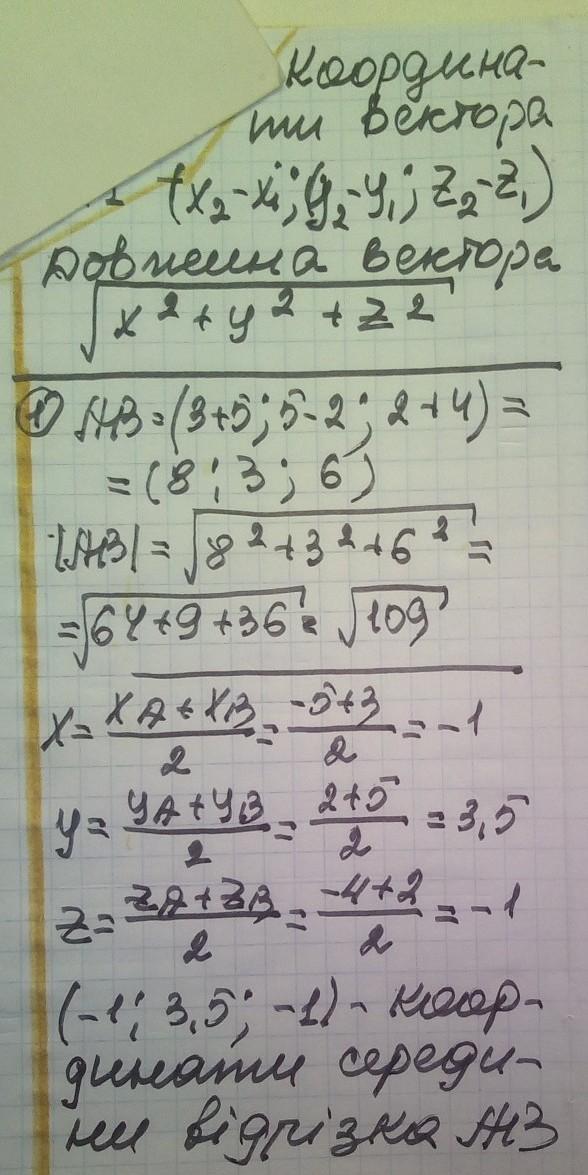 Координа-
ти вектора
(x₂-x₁; y₂-y₁; z₂-z₁)
Довжина вектора
√(x² + y² + z²)
① AB = (3+5; 5-2; 2+4) =
= (8; 3; 6)
|AB| = √(8² + 3² + 6²) =
= √(64+9+36) = √109
x = (xA + xB)/2 = (-5+3)/2 = -1
y = (yA + yB)/2 = (2+5)/2 = 3,5
z = (zA + zB)/2 = (-4+2)/2 = -1
(-1; 3,5; -1) - коор-
динати середи-
ни відрізка AB